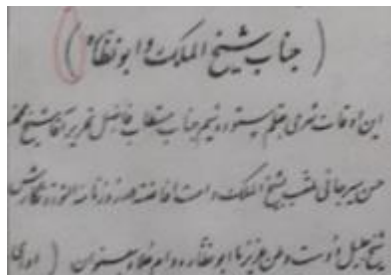 ( جناب شیخ الملک و ابونظاره )
این اوقات شرحی بقلم ستوده شیم جناب مستطاب فاضل نحریر آقا شیخ محمد
حسن سیرجانی ملقب بشیخ الملک دامت افاضته در روزنامه الثوره نگارش
شیخ جلیل اوست وطن عزیز ما ابونظاره دوام علاه بعنوان ( اوری